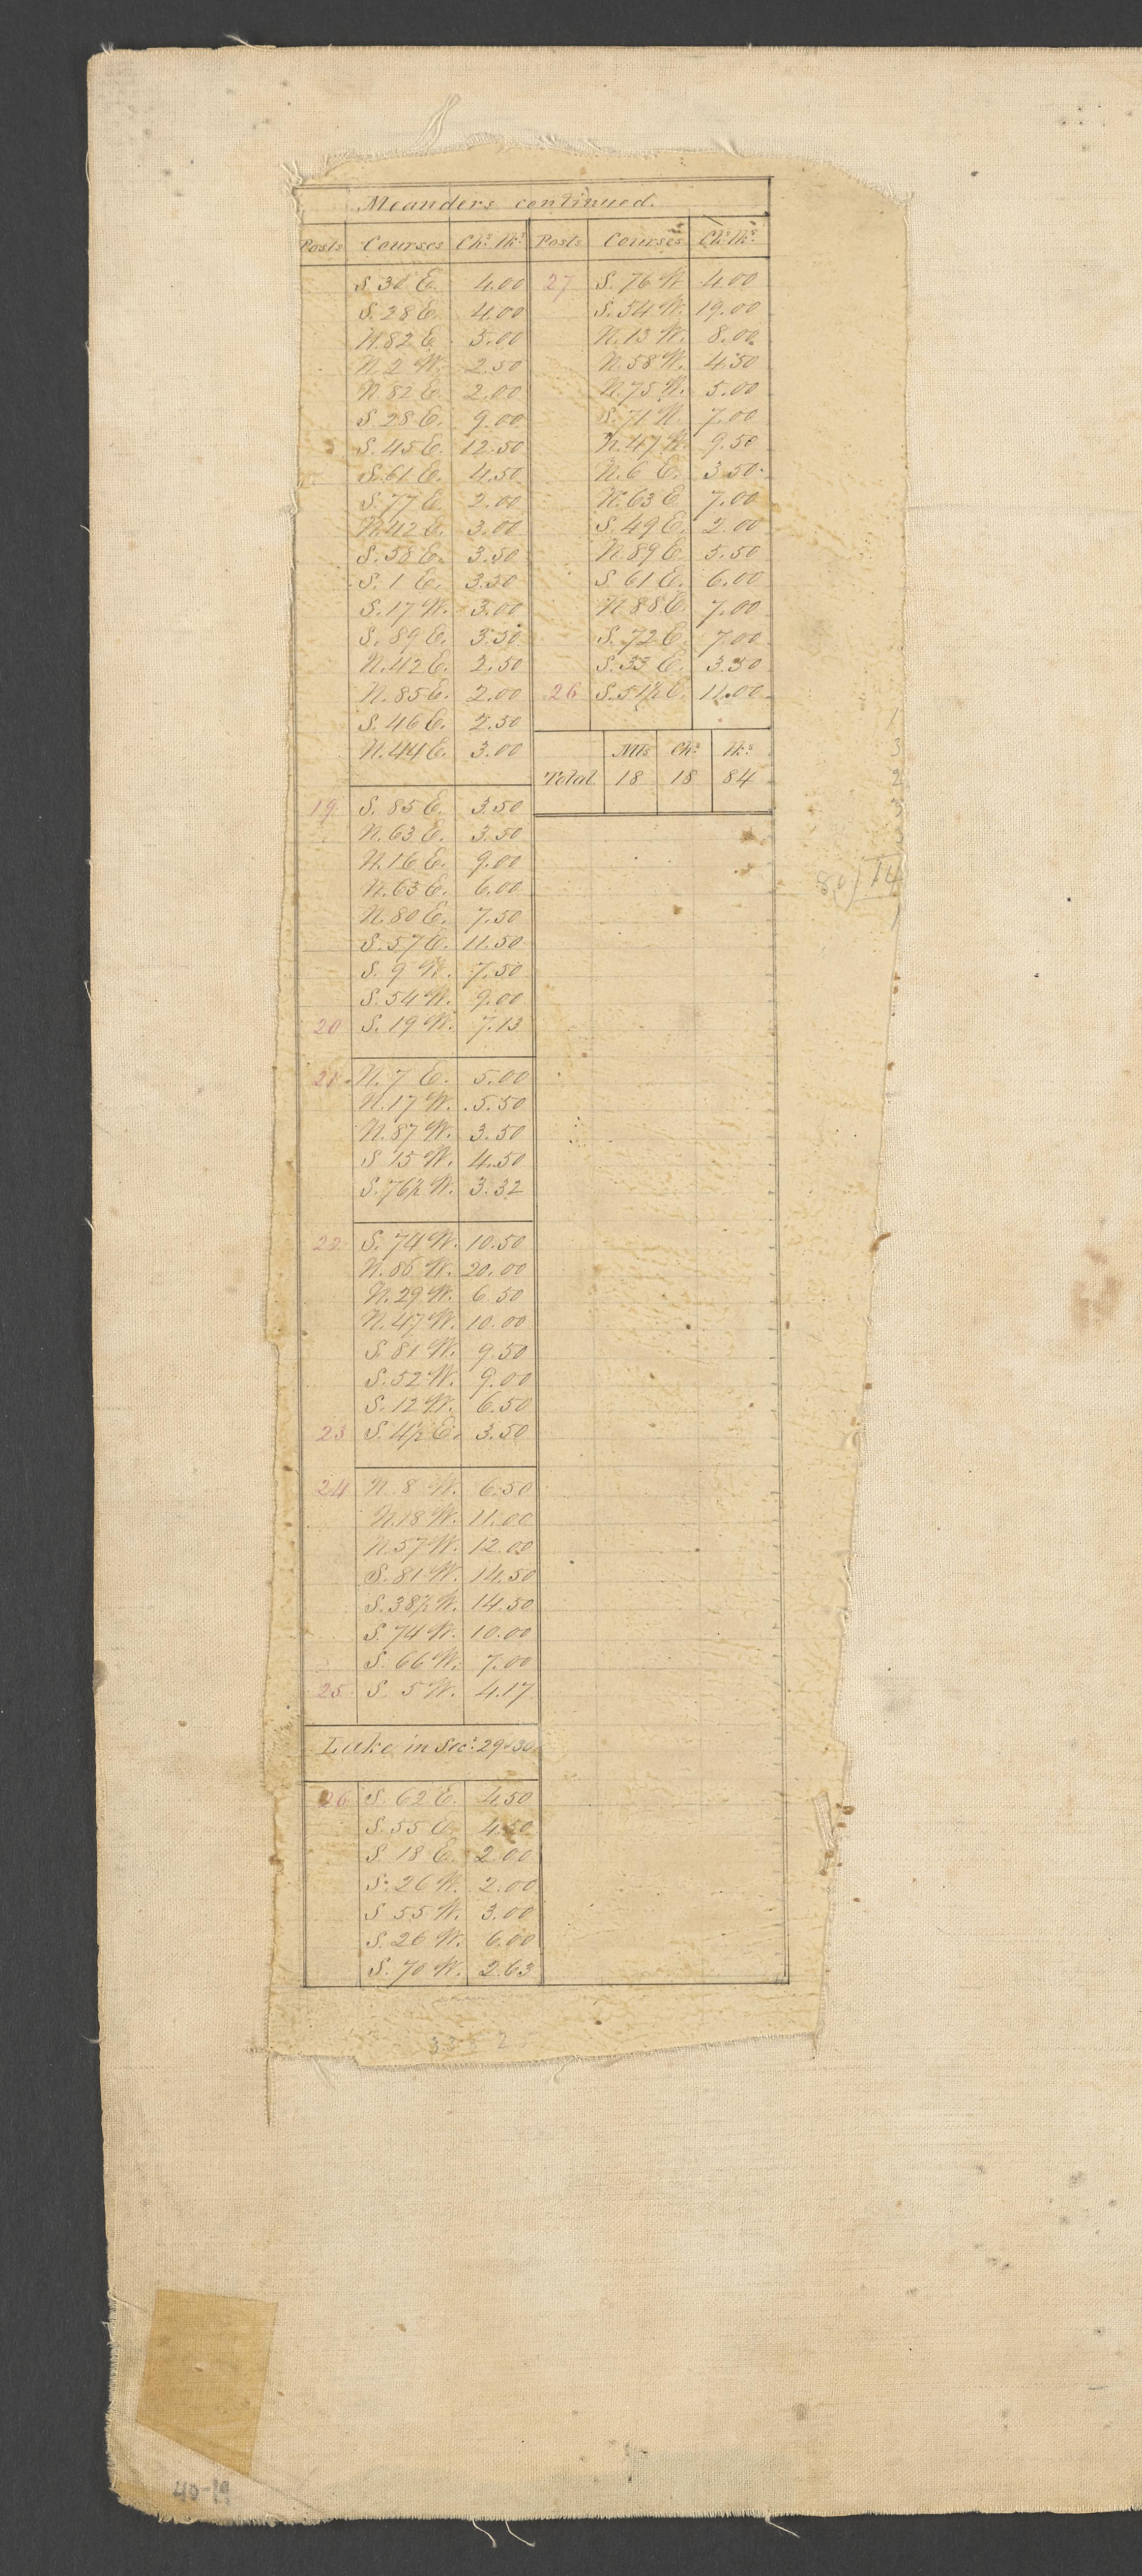 Meanders continued.
Posts Courses Chs. lks. Posts Courses Chs. lks.
S. 30 E. 4.00
S. 28 E. 4.00
N. 82 E. 5.00
N. 2 W. 2.50
N. 82 E. 2.00
S. 28 E. 9.00
S. 45 E. 12.50
S. 61 E. 4.50
S. 77 E. 2.00
N. 42 E. 3.00
S. 58 E. 3.50
S. 1 E. 3.50
S. 17 W. 3.00
S. 89 E. 3.50
N. 42 E. 2.50
N. 85 E. 2.00
S. 46 E. 2.50
N. 44 E. 3.00
19 S. 85 E. 3.50
N. 63 E. 3.50
N. 16 E. 9.00
N. 63 E. 6.00
N. 80 E. 7.50
S. 57 E. 11.50
S. 9 W. 7.50
S. 54 W. 9.00
20 S. 19 W. 7.13
21 N. 7 E. 5.00
N. 17 W. 5.50
N. 87 W. 3.50
S 15 W. 4.50
S. 76½ W. 3.32
22 S. 74 W. 10.50
N. 86 W. 20.00
N. 29 W. 6.50
N. 47 W. 10.00
S. 81 W. 9.50
S. 52 W. 9.00
S. 12 W. 6.50
23 S. 4½ E. 3.50
24 N. 8 W. 6.50
N. 18 W. 11.00
N. 57 W. 12.00
S. 81 W. 14.50
S. 38½ W. 14.50
S. 74 W. 10.00
S. 66 W. 7.00
25 S. 5 W. 4.17
Lake in Secs. 29 & 30
26 S. 62 E. 4.50
S. 55 E. 4.50
S. 18 E. 2.00
S. 26 W. 2.00
S 55 W. 3.00
S. 26 W. 6.00
S. 70 W. 2.63
27 S. 76 W 4.00
S. 54 W. 19.00
N. 13 W. 8.00
N. 58 W. 4.50
N. 75 W. 5.00
S. 71 W. 7.00
N. 47 W. 9.50
N. 6 E. 3.50
N. 63 E. 7.00
S. 49 E. 2.00
N. 89 E. 5.50
S 61 E. 6.00
N. 88 E. 7.00
S. 72 E. 7.00
S. 33 E. 3.50
26 S. 51½ E. 11.00
Mls Chs. lks.
Total 18 18 84
1
3
2
3
3
40-19